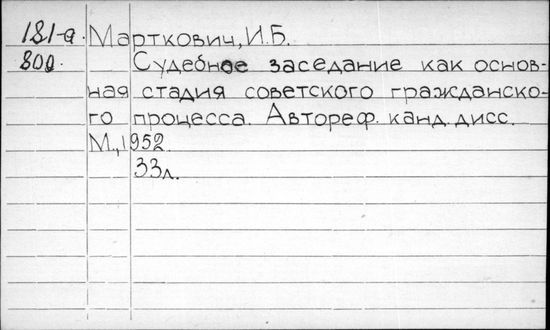 181-а Марткович, И.Б.
800. Судебное заседание как основ-
ная стадия советского гражданско-
го процесса. Автореф. канд. дисс.
М., 1952.
33л.